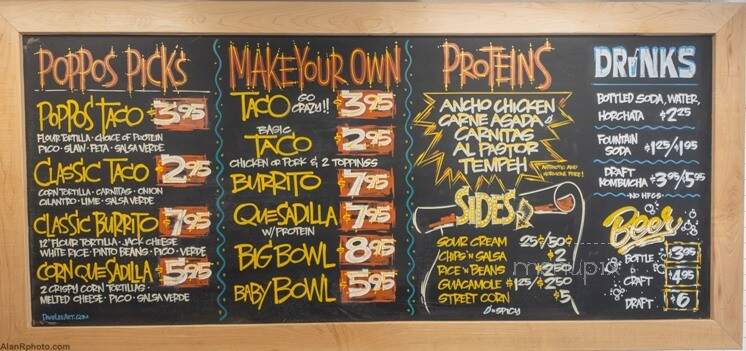 POPPOS PICKS
POPPOS TACO $3.95
FLOUR TORTILLA · CHOICE OF PROTEIN
PICO · SLAW · FETA · SALSA VERDE
CLASSIC TACO $2.95
CORN TORTILLA · CARNITAS · ONION
CILANTRO · LIME · SALSA VERDE
CLASSIC BURRITO $7.95
12" FLOUR TORTILLA · JACK CHEESE
WHITE RICE · PINTO BEANS · PICO · VERDE
CORN QUESADILLA $5.95
2 CRISPY CORN TORTILLAS ·
MELTED CHEESE · PICO · SALSA VERDE
DAVELEEART.COM
MAKE YOUR OWN
TACO GO CRAZY!! $3.95
BASIC
TACO $2.95
CHICKEN OR PORK & 2 TOPPINGS
BURRITO $7.95
QUESADILLA $7.95
W/ PROTEIN
BIG BOWL $8.95
BABY BOWL $5.95
PROTEINS
ANCHO CHICKEN
CARNE ASADA
CARNITAS
AL PASTOR
TEMPEH
ANTIBIOTIC AND
HORMONE FREE!
SIDES
SOUR CREAM 25¢/50¢
CHIPS 'N SALSA $2
RICE 'N BEANS
GUACAMOLE $1.25/$2.50
STREET CORN $5
SPICY
DRINKS
BOTTLED SODA, WATER,
HORCHATA $2.25
FOUNTAIN
SODA $1.25/$1.95
DRAFT
KOMBUCHA $3.95/$5.95
NO HFCS
BEER
BOTTLE $3.95
CRAFT $4.95
DRAFT $6
menupix
AlanRphoto.com